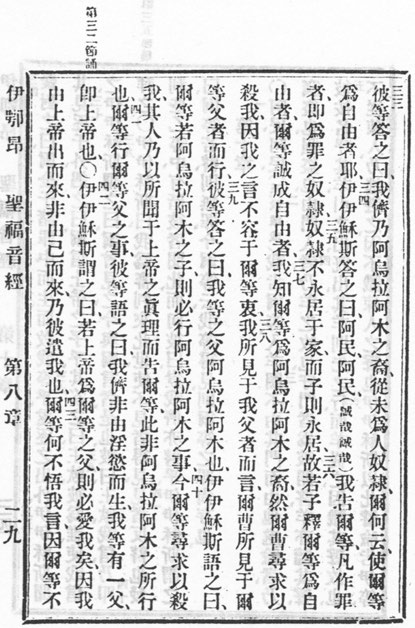 三三彼等答之曰、我儕乃阿烏拉阿木之裔、從未爲人奴隸、爾何云、使爾等
爲自由者耶、三四伊伊穌斯答之曰、阿民阿民、(誠哉誠哉)我告爾等、凡作罪
者卽爲罪之奴隸、三五奴隸不永居于家、而子則永居、三六故若子釋爾等爲自
由者、爾等誠成自由者、三七我知爾等爲阿烏拉阿木之裔、然爾曹尋求以
殺我、因我之言不容于爾等衷、三八我所見于我父者而言、爾曹所見于爾
等父者而行、三九彼等答之曰、我等之父阿烏拉阿木也、伊伊穌斯語之曰、
爾等若阿烏拉阿木之子、則必行阿烏拉阿木之事、四十今爾等尋求以殺
我、其人乃以所聞于上帝之眞理而告爾等、此非阿烏拉阿木之所行
也、四一爾等行爾等父之事、彼等語之曰、我儕非由淫慾而生、我等有一父、
卽上帝也、〇四二伊伊穌斯謂之曰、若上帝爲爾等之父、則必愛我矣、因我
由上帝出而來、非由己而來、乃彼遣我也、四三爾等何不悟我言、因爾等不
伊鄂昂 聖福音經 第八章 二九